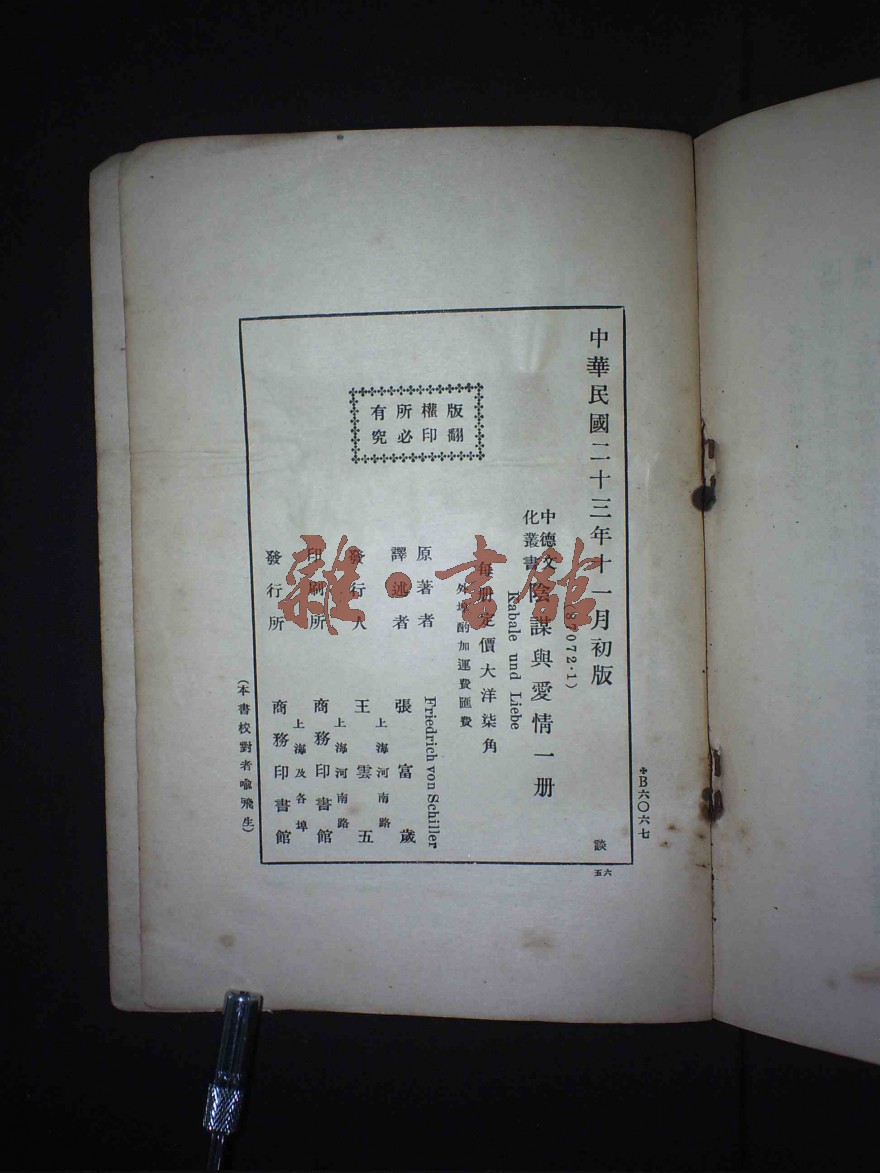 中華民國二十三年十一月初版
(87072·1)
中德文化叢書 陰謀與愛情一册
Kabale und Liebe
每册定價大洋柒角
外埠酌加運費匯費
版權所有
翻印必究
原著者 Friedrich von Schiller
譯述者 張富歲
上海河南路
發行人 王雲五
上海河南路
印刷所 商務印書館
上海及各埠
發行所 商務印書館
(本書校對者喻飛生)
B六〇六七
談
五六
雜·書館